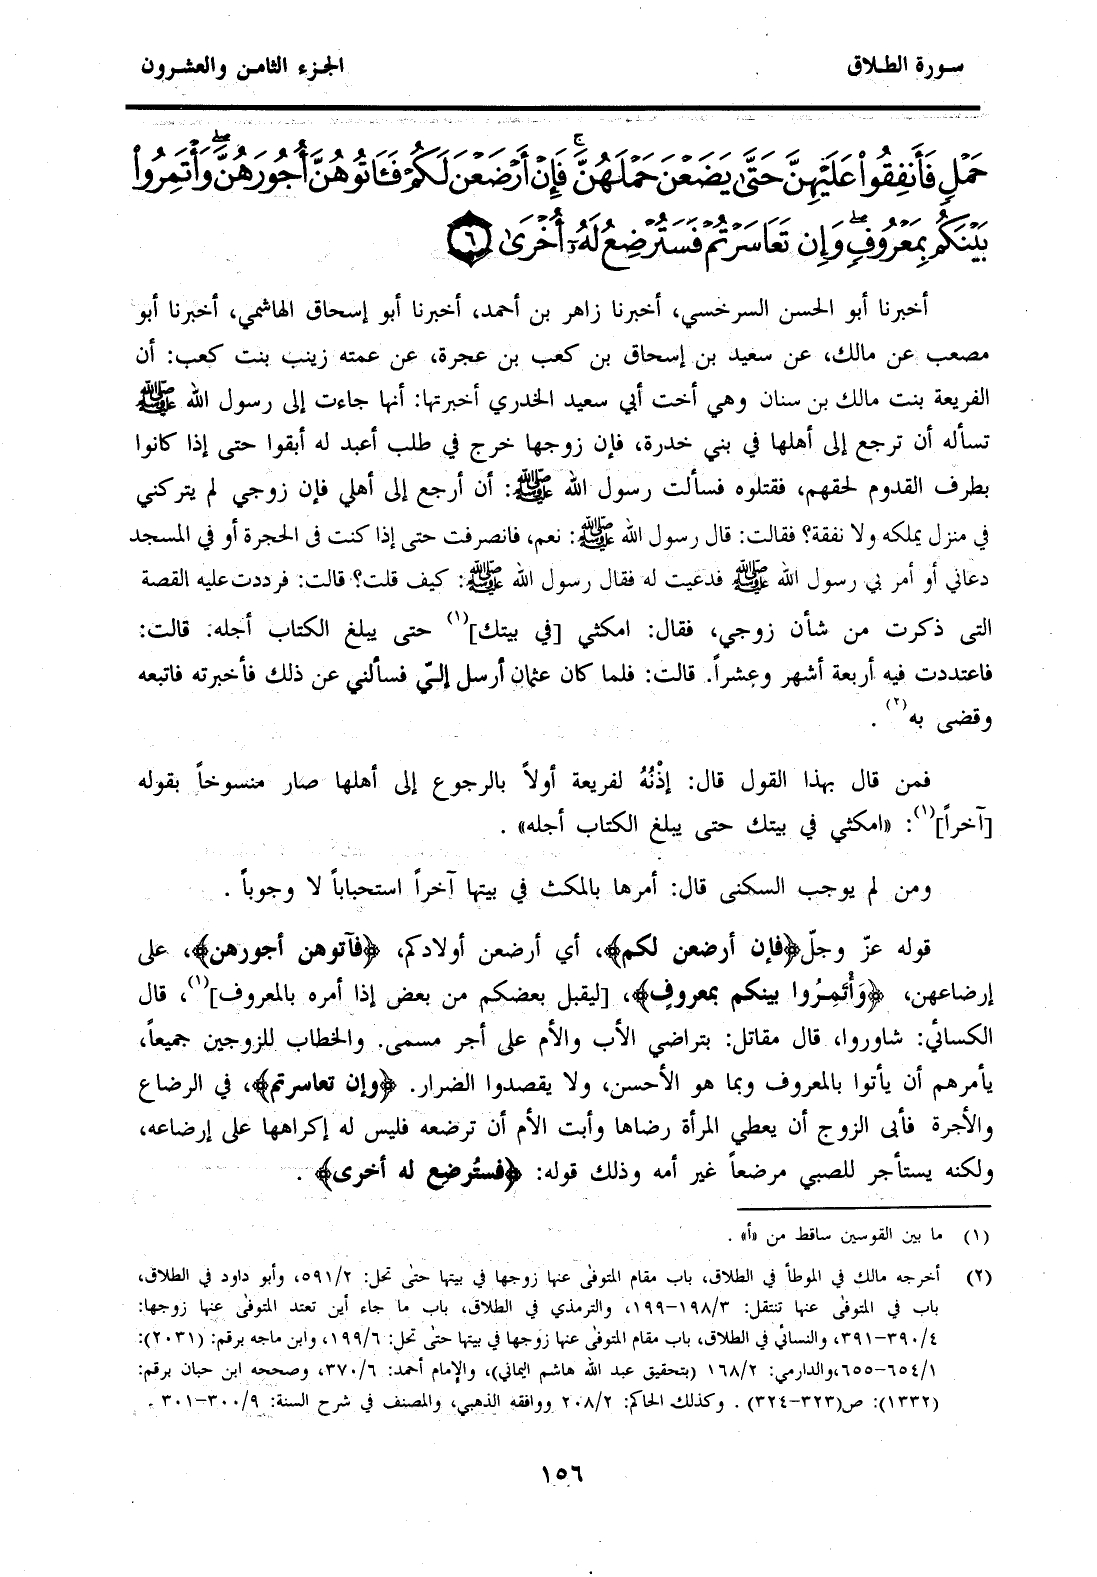 سورة الطلاق
الجزء الثامن والعشرون
حَمْلٍ فَأَنفِقُوا۟ عَلَيْهِنَّ حَتَّىٰ يَضَعْنَ حَمْلَهُنَّ ۚ فَإِنْ أَرْضَعْنَ لَكُمْ فَـَٔاتُوهُنَّ أُجُورَهُنَّ ۖ وَأْتَمِرُوا۟
بَيْنَكُم بِمَعْرُوفٍ ۖ وَإِن تَعَاسَرْتُمْ فَسَتُرْضِعُ لَهُۥٓ أُخْرَىٰ ٦
أخبرنا أبو الحسن السرخسي، أخبرنا زاهر بن أحمد، أخبرنا أبو إسحاق الهاشمي، أخبرنا أبو
مصعب عن مالك، عن سعيد بن إسحاق بن كعب بن عجرة، عن عمته زينب بنت كعب: أن
الفريعة بنت مالك بن سنان وهي أخت أبي سعيد الخدري أخبرتها: أنها جاءت إلى رسول الله ﷺ
تسأله أن ترجع إلى أهلها في بني خدرة، فإن زوجها خرج في طلب أعبد له أبقوا حتى إذا كانوا
بطرف القدوم لحقهم، فقتلوه فسألت رسول الله ﷺ: أن أرجع إلى أهلي فإن زوجي لم يتركني
في منزل يملكه ولا نفقة؟ فقالت: قال رسول الله ﷺ: نعم، فانصرفت حتى إذا كنت فى الحجرة أو في المسجد
دعاني أو أمر بي رسول الله ﷺ فدعيت له فقال رسول الله ﷺ: كيف قلت؟ قالت: فرددت عليه القصة
التى ذكرت من شأن زوجي، فقال: امكثي [في بيتك](١) حتى يبلغ الكتاب أجله. قالت:
فاعتددت فيه أربعة أشهر وعشراً. قالت: فلما كان عثمان أرسل إليّ فسألني عن ذلك فأخبرته فاتبعه
وقضى به(٢) .
فمن قال بهذا القول قال: إذْنُهُ لفريعة أولاً بالرجوع إلى أهلها صار منسوخاً بقوله
[آخراً](١): «امكثي في بيتك حتى يبلغ الكتاب أجله» .
ومن لم يوجب السكنى قال: أمرها بالمكث في بيتها آخراً استحباباً لا وجوباً .
قوله عزّ وجلّ ﴿فإن أرضعن لكم﴾، أي أرضعن أولادكم، ﴿فآتوهن أجورهن﴾، على
إرضاعهن، ﴿وَأْتَمِرُوا بينكم بمعروفٍ﴾، [ليقبل بعضكم من بعض إذا أمره بالمعروف](١)، قال
الكسائي: شاوروا، قال مقاتل: بتراضي الأب والأم على أجر مسمى. والخطاب للزوجين جميعاً،
يأمرهم أن يأتوا بالمعروف وبما هو الأحسن، ولا يقصدوا الضرار. ﴿وإن تعاسرتم﴾، في الرضاع
والأجرة فأبى الزوج أن يعطي المرأة رضاها وأبت الأم أن ترضعه فليس له إكراهها على إرضاعه،
ولكنه يستأجر للصبي مرضعاً غير أمه وذلك قوله: ﴿فستُرضِع له أخرى﴾ .
(١) ما بين القوسين ساقط من «أ» .
(٢) أخرجه مالك في الموطأ في الطلاق، باب مقام المتوفى عنها زوجها في بيتها حتى تحل: ٥٩١/٢، وأبو داود في الطلاق،
باب في المتوفى عنها تنتقل: ١٩٨/٣-١٩٩، والترمذي في الطلاق، باب ما جاء أين تعتد المتوفى عنها زوجها:
٣٩٠/٤-٣٩١، والنسائي في الطلاق، باب مقام المتوفى عنها زوجها في بيتها حتى تحل: ١٩٩/٦، وابن ماجه برقم: (٢٠٣١):
٦٥٤/١-٦٥٥،والدارمي: ١٦٨/٢ (بتحقيق عبد الله هاشم اليماني)، والإمام أحمد: ٣٧٠/٦، وصححه ابن حبان برقم:
(١٣٣٢): ص(٣٢٣-٣٢٤) . وكذلك الحاكم: ٢٠٨/٢ ووافقه الذهبي، والمصنف في شرح السنة: ٣٠٠/٩-٣٠١ .
١٥٦